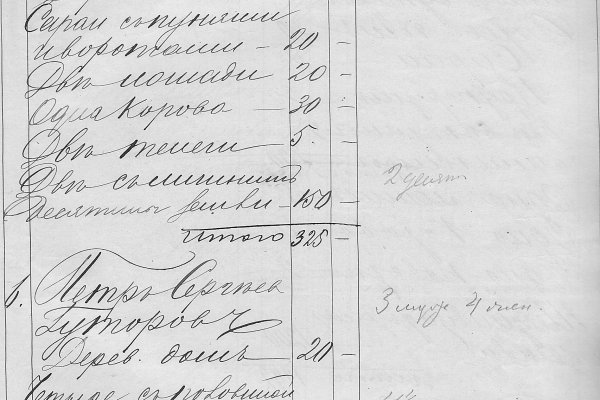 Сараи съ пунями
и воротами — 20 —
Двѣ лошади 20 —
Одна корова — 30 —
Двѣ телеги 5. —
Двѣ съ
Десятины земли — 150 — 2 десят
Итого 325 —
6. Петръ Сергѣев
Гуторовъ 3 муж 4 жен.
Дерев. домъ — 20 —